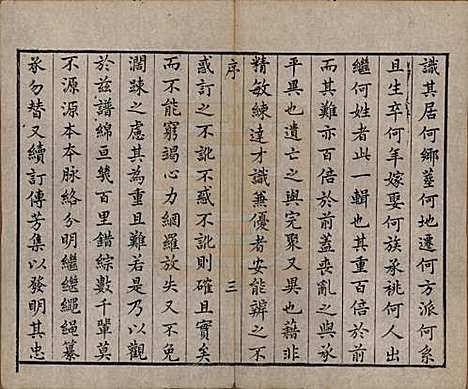 識其居何鄉塟何地遷何方派何系
且生卒何年嫁娶何族承祧何人出
繼何姓者此一輯也其重百倍於前
而其難亦百倍於前蓋喪亂之與承
平異也遺亡之與完聚又異也藉非
精敏練達才識兼優者安能辨之不
序
三
惑訂之不訛不惑不訛則確且實矣
而不能窮竭心力網羅放失又不免
濶疎之慮其為重且難若是乃以觀
於茲譜綿亘幾百里錯綜數千軰莫
不源源本本脉絡分明繼繼繩繩纂
承勿替又續訂傳芳集以發明其忠